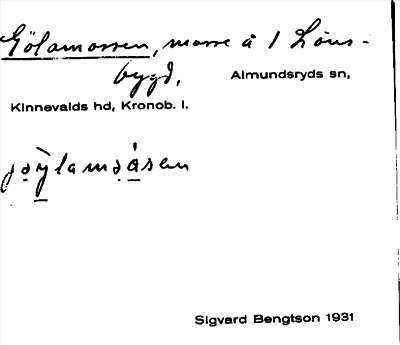 Gölamossen, mosse å 1 Löns-
bygd, Almundsryds sn,
Kinnevalds hd, Kronob. l.
Sigvard Bengtson 1931